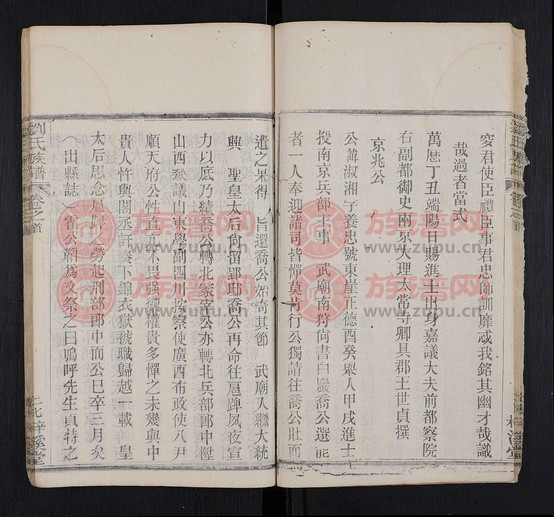 安君使臣禮臣事君忠師訓靡戒我銘其幽才哉識
哉過者當式
萬曆丁丑端陽日賜進士出身嘉議大夫前都察院
右副都御史南京大理太常寺卿具郡王世貞撰
京兆公
公諱淑湘字養忠號東崖正德酉癸舉人甲戌進士
投南京兵部主事 武廟南狩尚書白巖喬公選能
者一人奉迎諸司皆憚莫肯行公獨請往喬公壯而
遣之果得 旨還喬公始奇其節 武廟入繼大統
興 聖皇太后尚留邸喬公再命往扈蹕夙夜宣
力以底乃績喬公轉北冢宰公亦轉北兵部郎中陞
山西參議山東學副四川按察使廣西布政使入尹
順天府公性直亦不畏強禦權貴多憚之未幾與中
貴人忤與閣丞許 下錦衣獄褫職歸越一載 皇
太后思念 之勞起刑部郎中而公已卒三月矣
出縣誌 公 為文祭之曰嗚呼先生貞特之
劉氏族譜
卷之首
梓溪堂
族谱网
www.zupu.cn